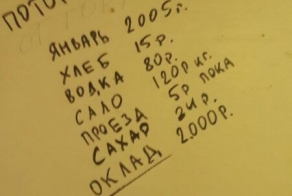 ПОТО
ЯНВАРЬ 2005г.
ХЛЕБ 15р.
ВОДКА 80р.
САЛО 120р кг.
ПРОЕЗД 5р пока
САХАР 21р.
ОКЛАД 2.000р.